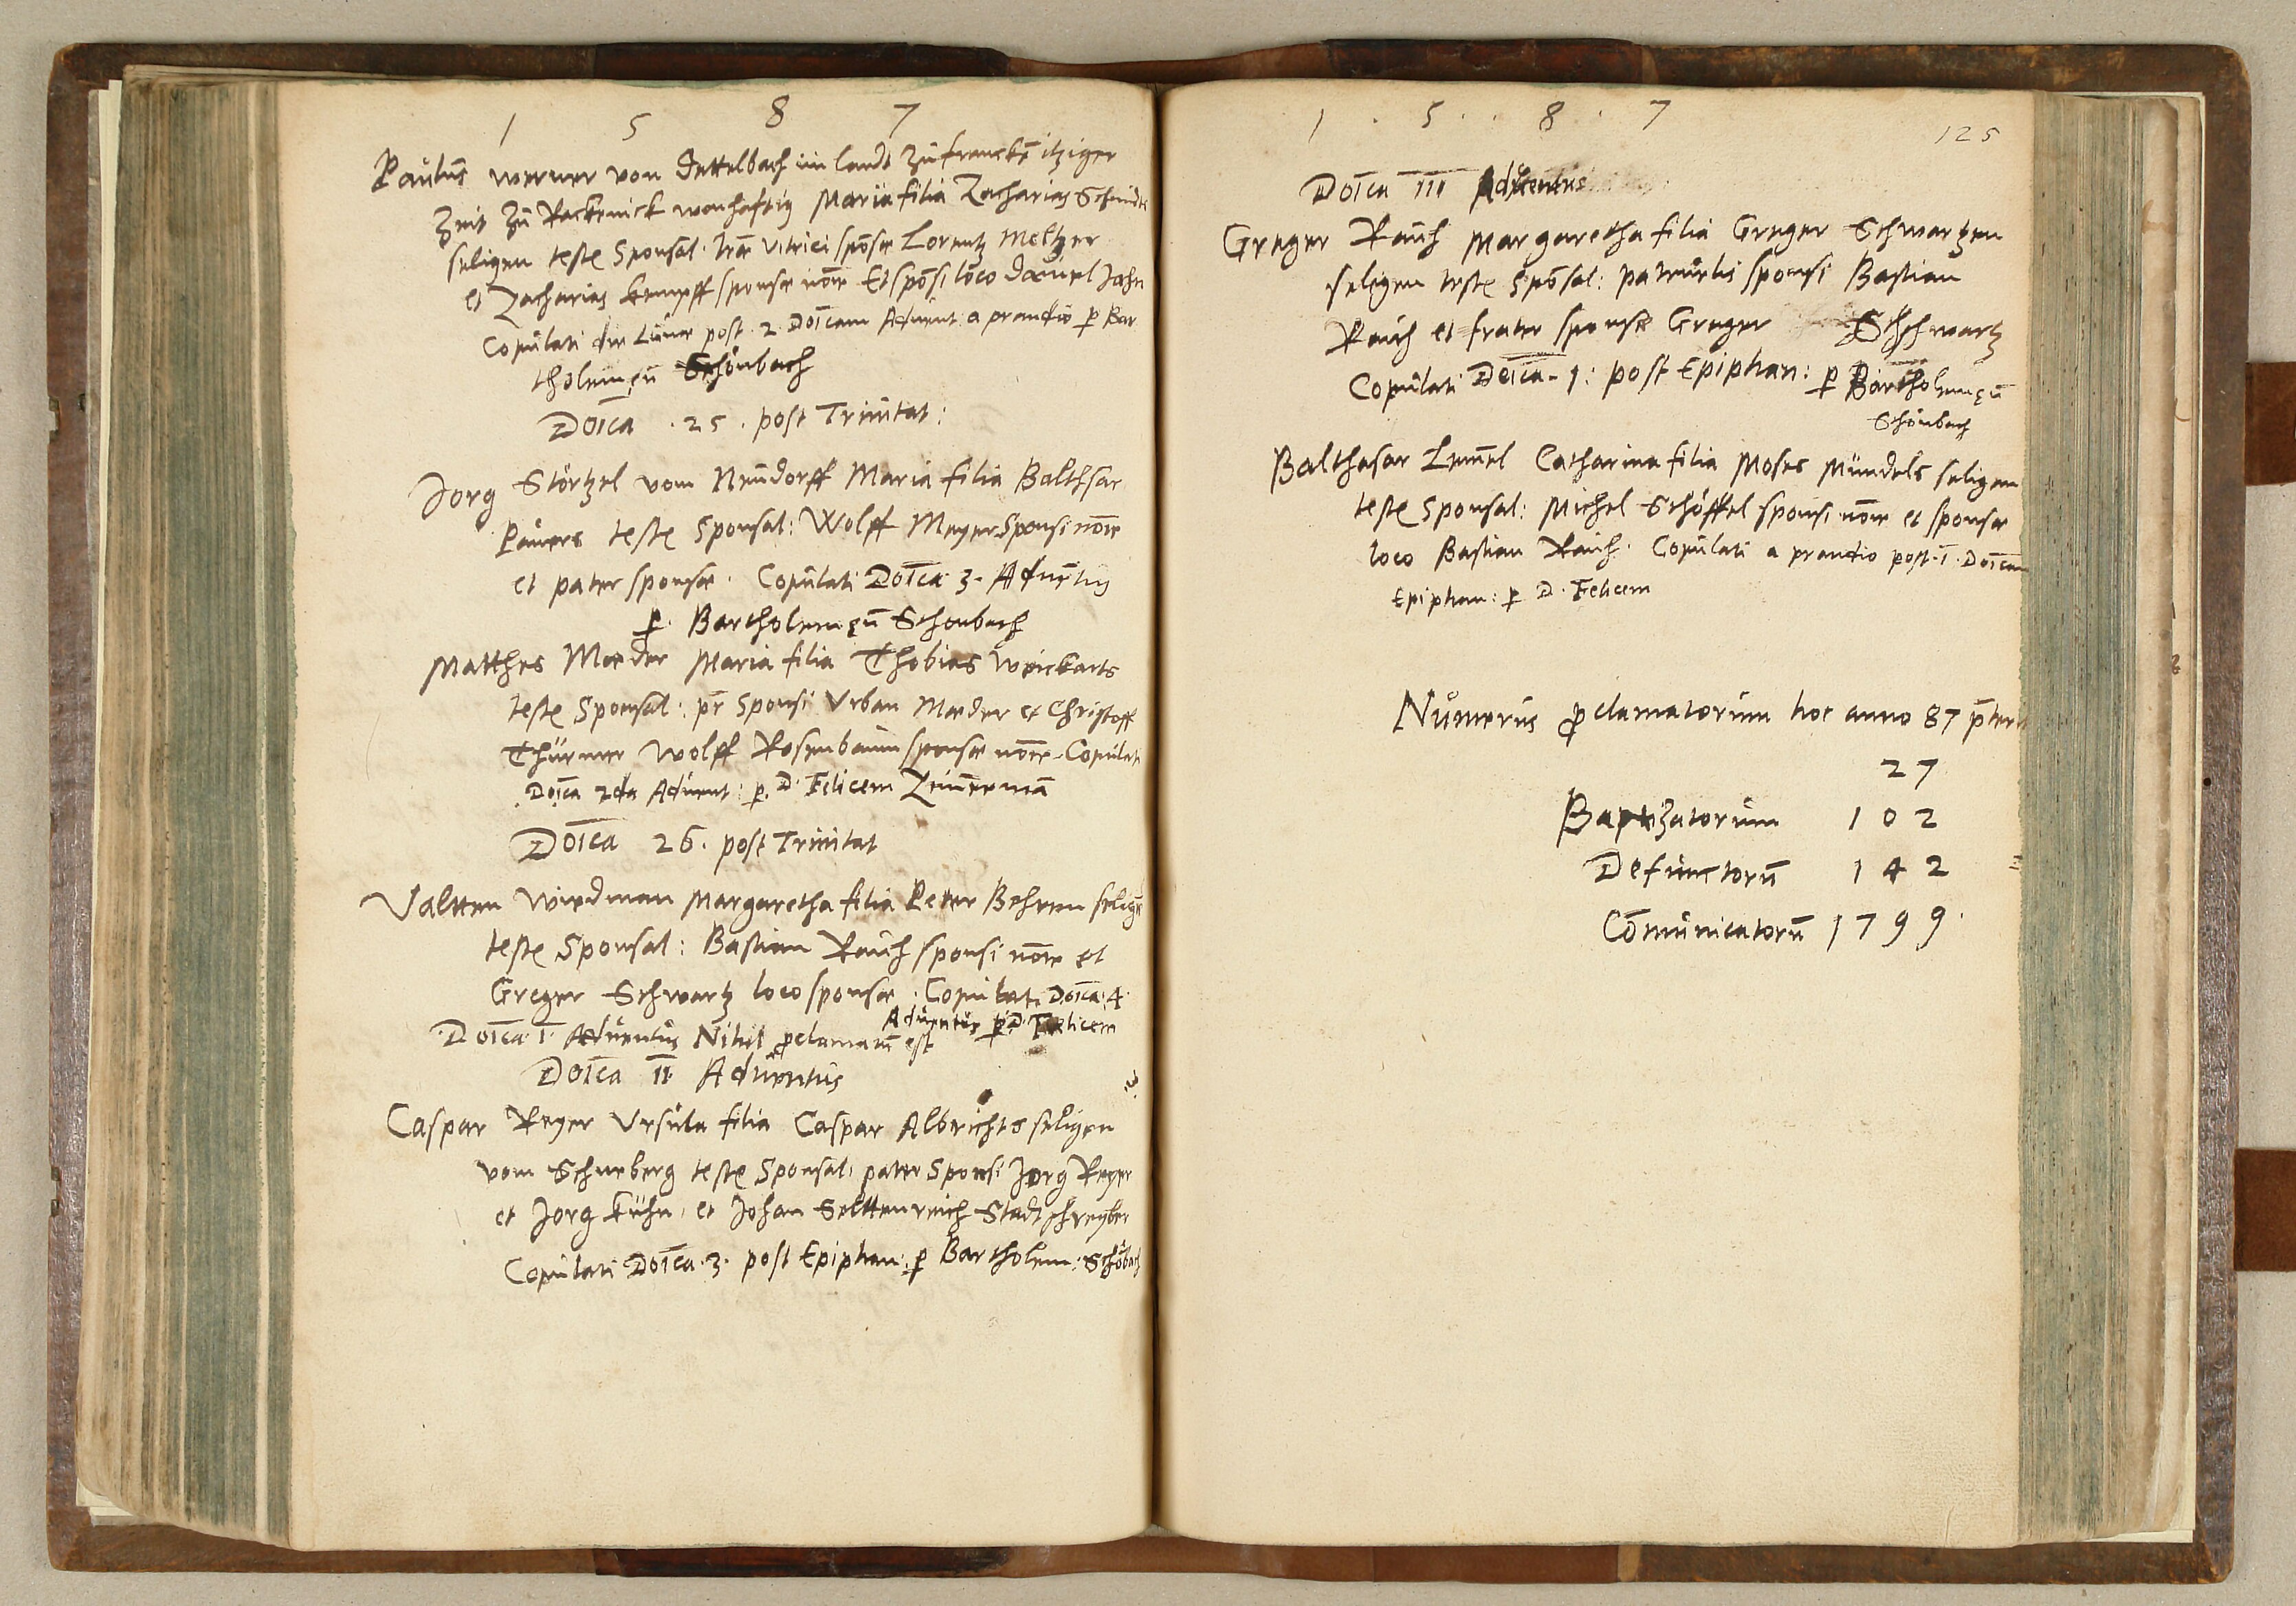 1 5 8 7
Paulus werner von Dettelbach im landt zu francke itziger
Zeit zu Rackenick wonhafftig Maria filia Zacharias Schmidts
seligen teste Sponsal. vitrici sponsae Lorentz Meltzer
et Zacharias kempff sponsae noie Et sponsi loco Daniel Jahn
Copulati die Lunae post. 2. Doicam Aduent: a prandio p Bar
tholemeu Schönbach
Doica . 25 . post Trinitat:
Jorg Störtzel vom Neudorff Maria filia Balthsar
Paüers teste Sponsal: Wolff Meyer Sponsi noie
et pater sponsae. Copulati Doica 3. Aduetus
p. Bartholemeu Schonbach
Matthes Maeder Maria filia Thobias Weickarts
teste Sponsal: pr Sponsi Vrban Maeder et Christoff
Thürmer Wolff Rosenbaum sponsae noie. Copulati
Doica 2da Aduent: p. D. Felicem Zimerma
Doica 26. post Trinitat
Valtten Wiedman Margaretha filia Peter Behem selige
teste Sponsal: Bastian Rauch sponsi noie et
Greger Schwartz loco sponsae. Copulati Doica. 4.
Aduentus p. D. Felicem
Doica. I. Aduentus Nihil pclamatu est
Doica II Aduentus
Caspar Reyer Vrsula filia Caspar Albrichts seligen
vom Schneberg teste Sponsal: pater Sponsi Jorg Reyer
et Jorg kuhn, et Johan Selttenreich Stadtschreyber
Copulati Doica. 3. post Epiphan: p Bartholem: Schöbach
1 . 5 . . 8 . 7
125
Doica III Aduentus
Greger Rauch Margaretha filia Greger Schwartzen
seligen teste Sposal: patruelis sponsi Bastian
Rauch et frater sponse Greger Schwartz
Copulati Doica. 1: post Epiphan: p Bartholemeu
Schönbach
Balthasar Lemel Catharina filia Moses Mündels seligen
teste Sponsal: Michel Schöffel sponsi noie et sponsae
loco Bastian Rauch. Copulati a prandio post. 1. Doicam
Epiphan: p D. Felicem
Numerus pclamatorum hoc anno 87
27
Baptizatorum 1 0 2
Defunctoru 1 4 2
Comunicatoru 1 7 9 9.